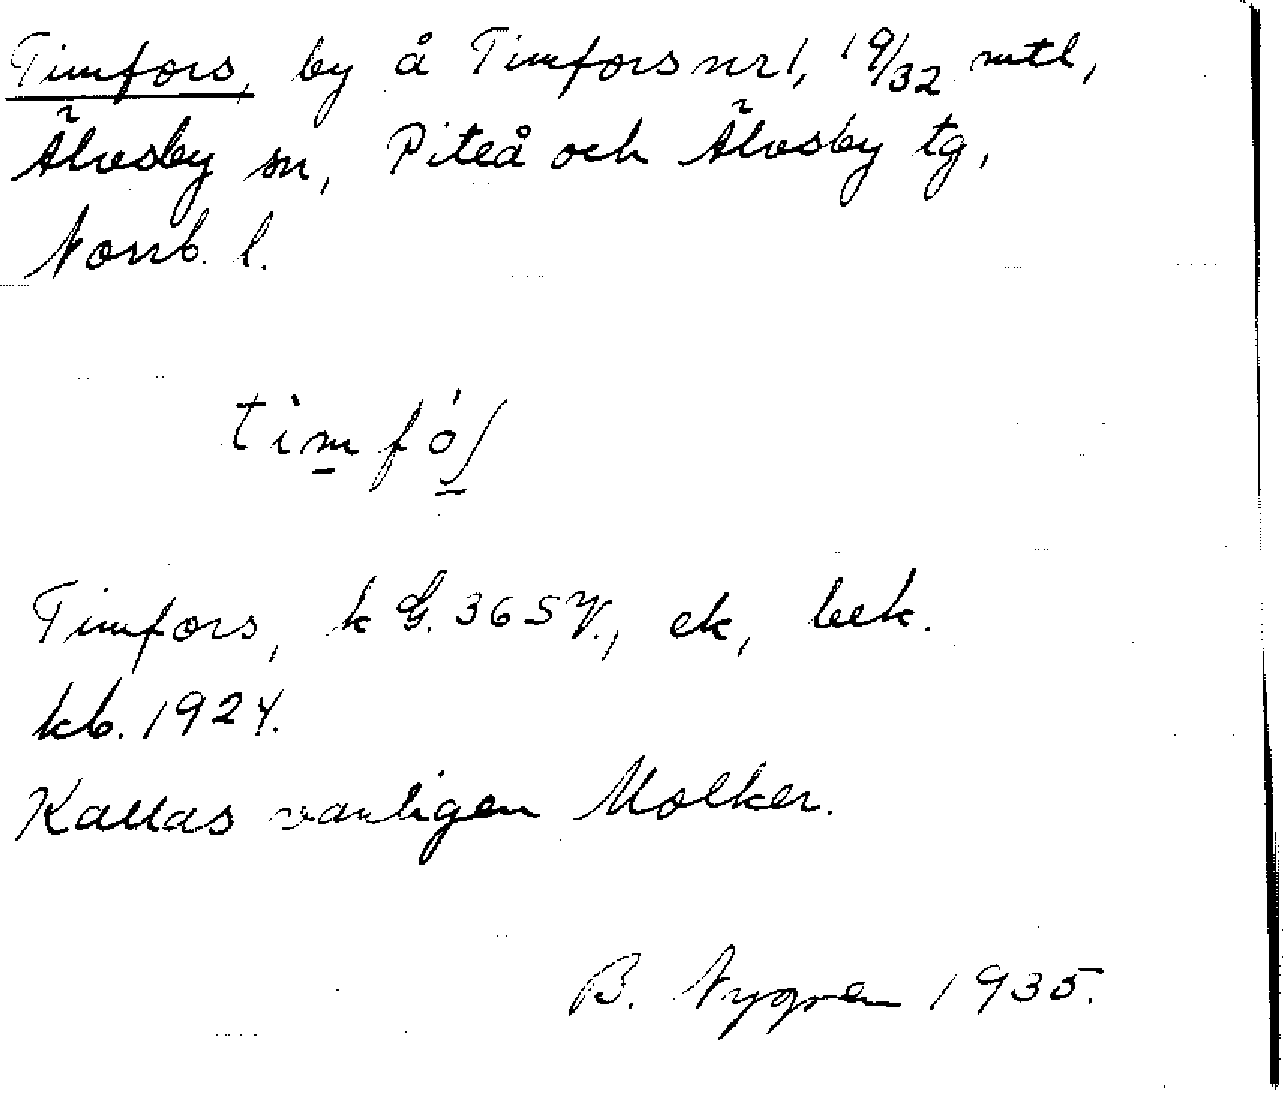 Timfors, by å Timfors nr 1, 19/32 mtl,
Älvsby sn, Piteå och Älvsby tg,
Norrb. l.
tìmfóʃ
Timfors, k G. 365 V., ek, bek.
kb. 1924.
Kallas vanligen Molker.
B. Nygren 1935.